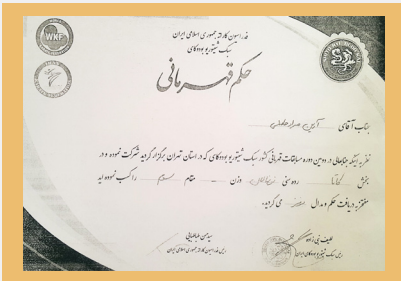 WKF
فدراسیون کاراته جمهوری اسلامی ایران
سبک شیتوریو بودوکای
حکم قهرمانی
جناب آقای
نظر به اینکه جنابعالی در دومین دوره مسابقات قهرمانی کشور سبک شیتوریو بودوکای که در استان تهران برگزار گردید شرکت نموده و در
بخش کاتا رده سنی وزن مقام سوم را کسب نموده اید
مفتخر به دریافت حکم و مدال می گردید.
سید حسن طباطبایی
رئیس فدراسیون کاراته جمهوری اسلامی ایران
رئیس سبک شیتوریو بودوکای ایران